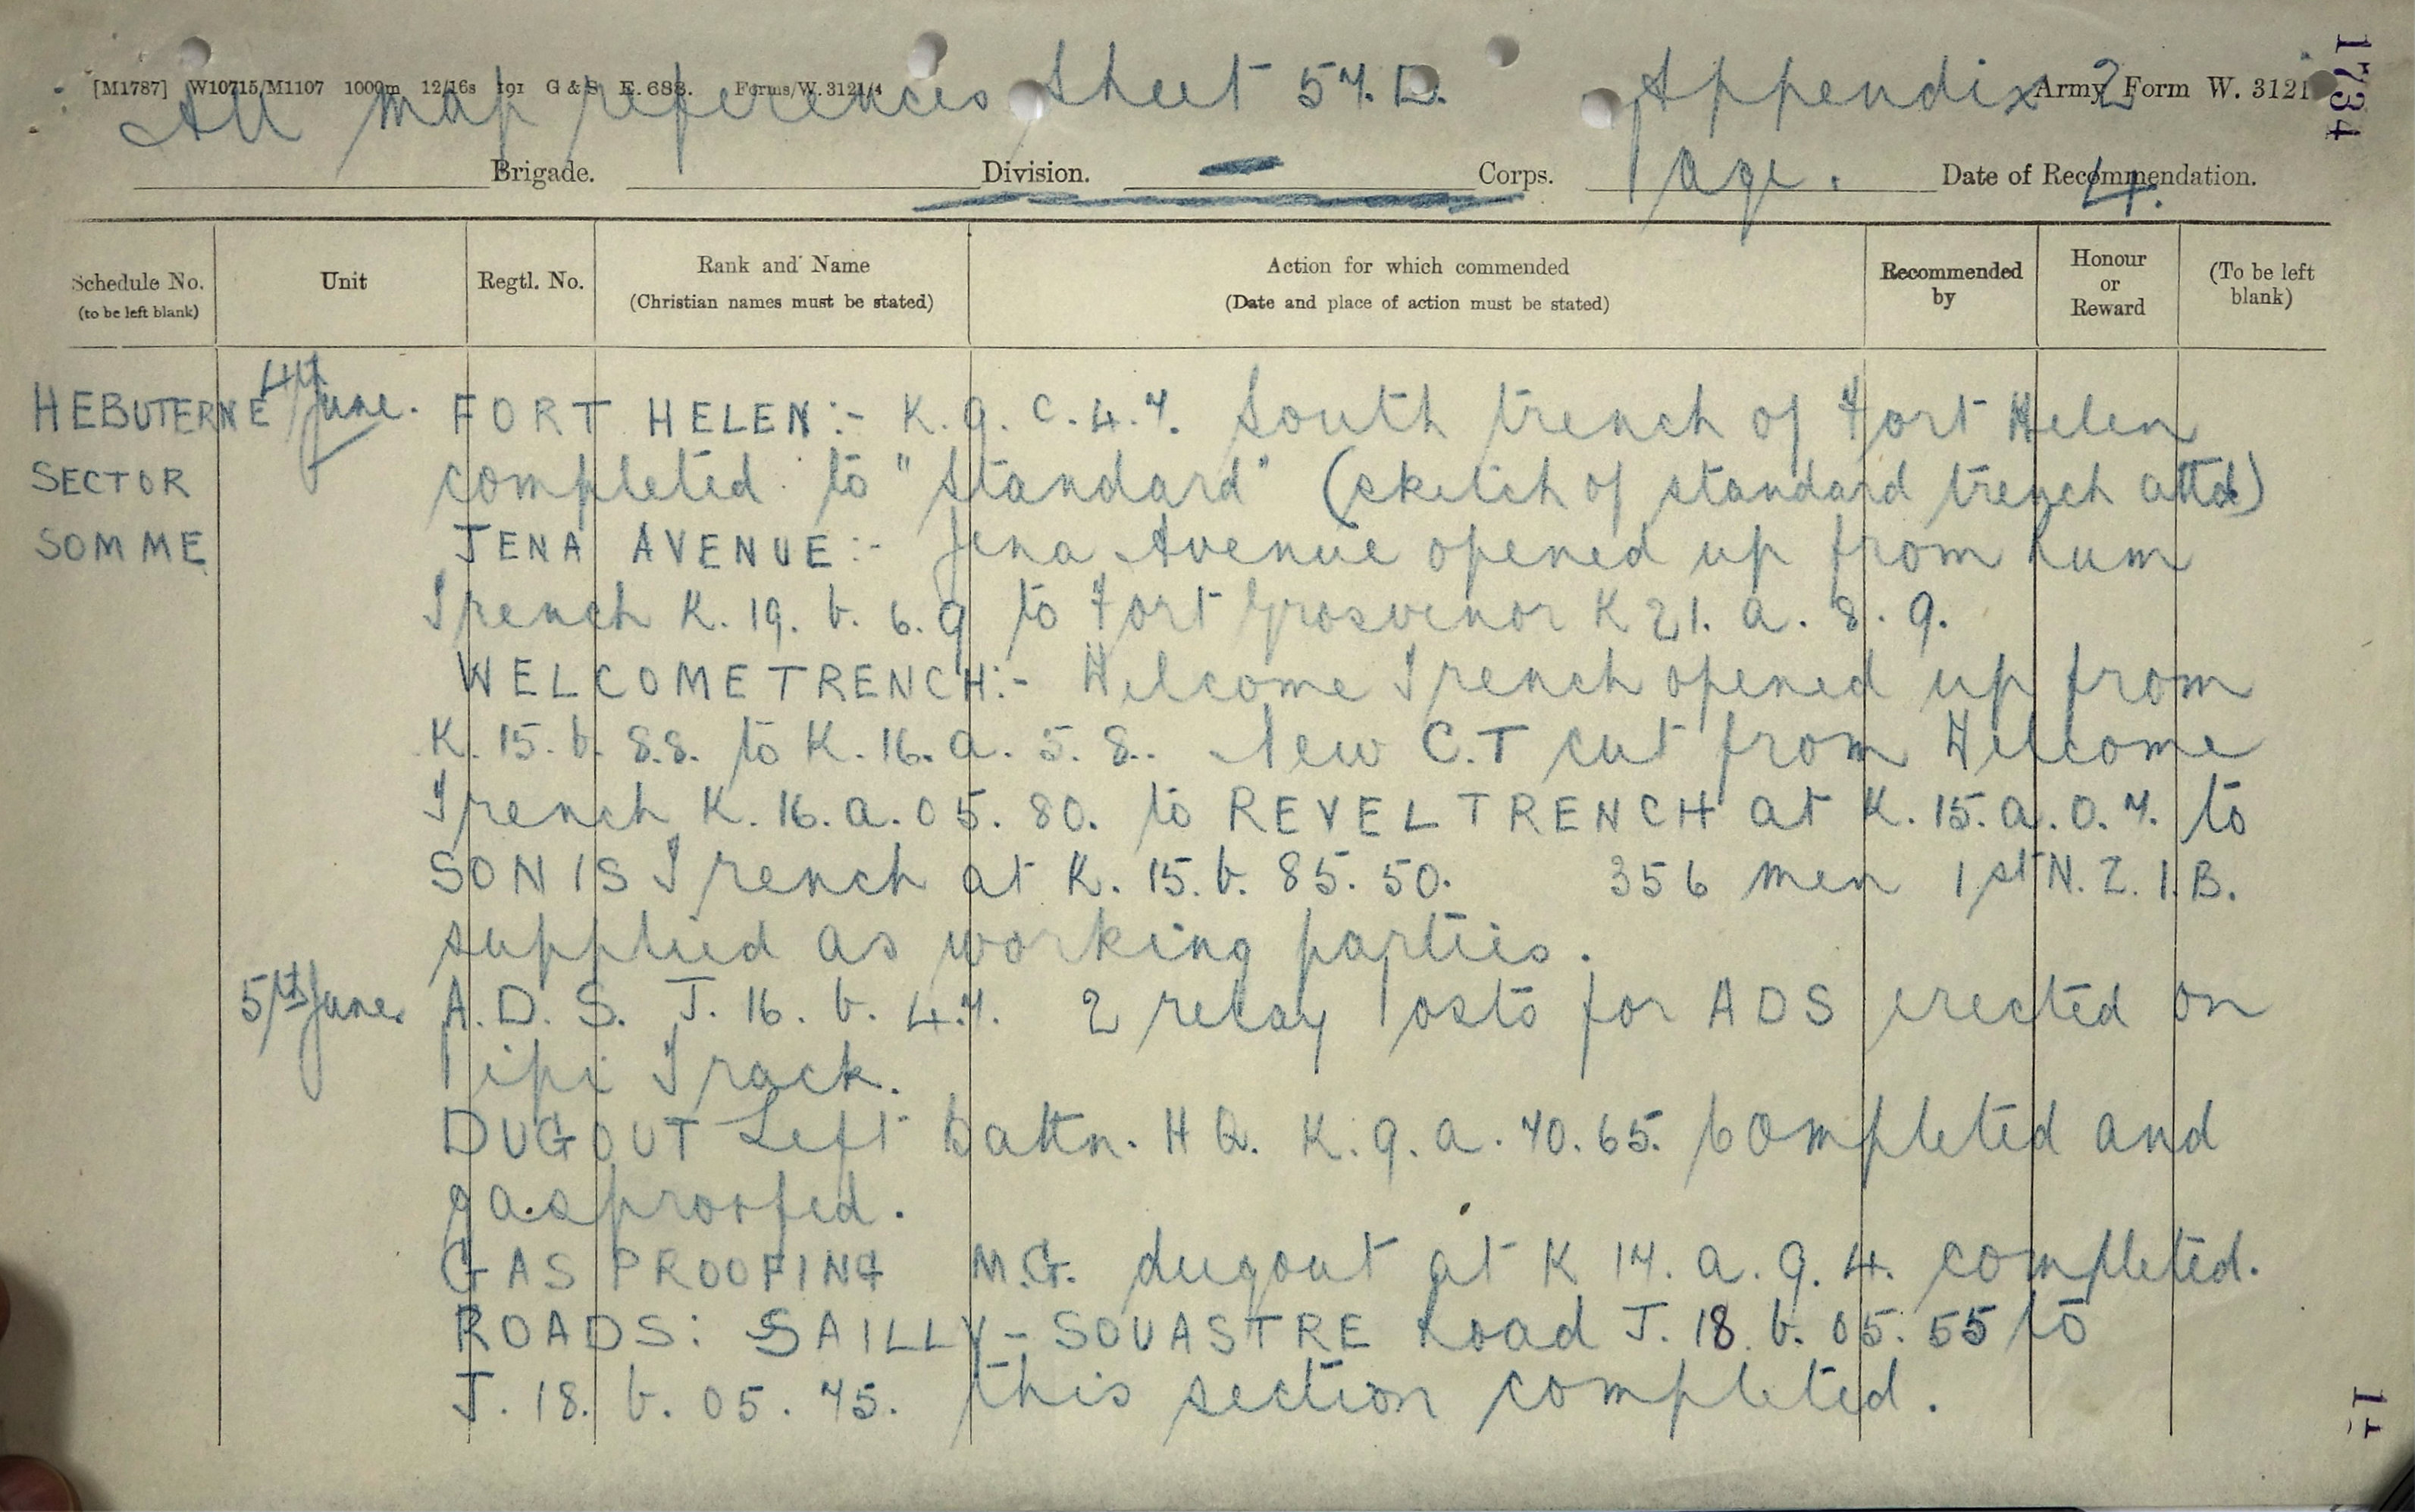 [M1787] W10715/M1107 1000m 12/16s 191 G & S. E. 688. Forms/W. 3121/4 Army Form W. 3121
All map references Sheet 57.D. Appendix 2
Page. 4.
Brigade. Division. Corps. Date of Recommendation.
Schedule No. (to be left blank) Unit Regtl. No. Rank and Name (Christian names must be stated) Action for which commended (Date and place of action must be stated) Recommended by Honour or Reward (To be left blank)
HEBUTERNE 4th June. FORT HELEN:- K.9.c.4.7. South trench of Fort Helen
SECTOR completed to "Standard" (sketch of standard trench attd)
SOMME JENA AVENUE:- Jena Avenue opened up from Rum
Trench K.19.b.6.9 to Fort Grosvenor K21.a.8.9.
WELCOME TRENCH:- Welcome Trench opened up from
K.15.b.8.8. to K.16.a.5.8.. New C.T cut from Welcome
Trench K.16.a.05.80. to REVEL TRENCH at K.15.a.0.7. to
SONIS Trench at K.15.b.85.50. 356 men 1st N.Z.I.B.
supplied as working parties.
5th June. A.D.S. J.16.b.4.7. 2 relay Posts for ADS erected on
Pipi Track.
DUGOUT Left Battn. HQ. K.9.a.70.65. Completed and
gasproofed.
GAS PROOFING M.G. dugout at K 17.a.9.4. completed.
ROADS: SAILLY - SOUASTRE Road J.18.b.05.55 to
J.18.b.05.75. this section completed.
1734